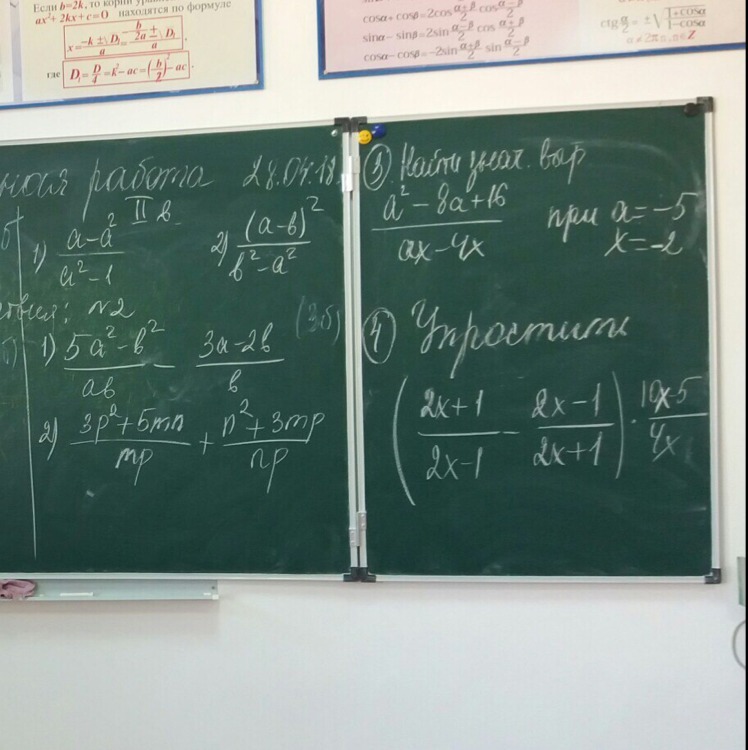 Если b=2k, то корни
ax²+2kx+c=0 находятся по формуле
где D₁=D/4=k²-ac=(b/2)²-ac.
cosα+cosβ=2cos (α+β)/2 cos (α-β)/2
sinα-sinβ=2sin (α-β)/2 cos (α+β)/2
cosα-cosβ=-2sin (α+β)/2 sin (α-β)/2
ctg α/2 = ±√((1+cosα)/(1-cosα))
работа 28.04.18
II в
1) (a-a²)/(a²-1) 2) (a-b)²/(b²-a²)
№2
(3б)
1) (5a²-b²)/ab - (3a-2b)/b
2) (3p²+5mn)/mp + (n²+3mp)/np
3 Найти знач. выр
(a²-8a+16)/(ax-4x) при a=-5
x=-2
4 Упростить
((2x+1)/(2x-1) - (2x-1)/(2x+1)) · (10x-5)/4x